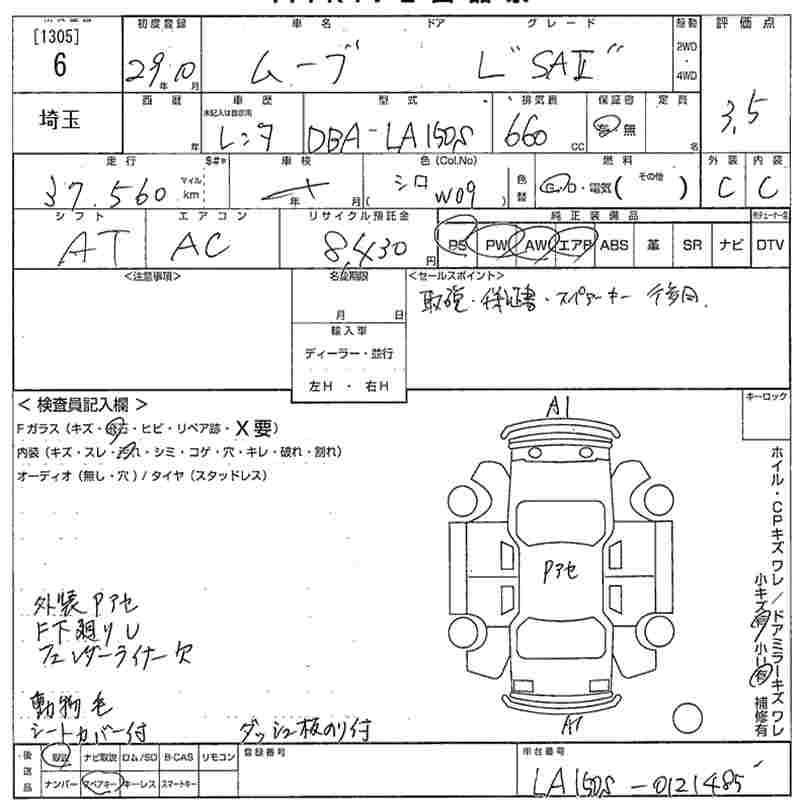 [1305]
6
初度登録
29年10月
車名
ムーブ
ドア
グレード
L"SAⅡ"
駆動
2WD
・
4WD
評価点
3.5
埼玉
西暦
年
車歴
未記入は自家用
レンタ
型式
DBA-LA150S
排気量
660cc
保証書
有・無
定員
名
走行
37,560
マイル
km
車検
年 月
色(Col.No)
シロ
( W09 )
色替
燃料
G・D・電気( その他 )
外装
C
内装
C
シフト
AT
エアコン
AC
リサイクル預託金
8,430円
純正装備品
PS PW AW エアB ABS 革 SR ナビ DTV
<注意事項>
名変期限
月 日
輸入車
ディーラー・並行
左H ・ 右H
<セールスポイント>
取説・保証書・スペアーキー 後日.
<検査員記入欄>
Fガラス(キズ・飛石・ヒビ・リペア跡・X要)
内装(キズ・スレ・汚れ・シミ・コゲ・穴・キレ・破れ・割れ)
オーディオ(無し・穴)/タイヤ(スタッドレス)
キーロック
A1
Pアセ
A1
ホイル・CPキズ ワレ/ドアミラーキズ ワレ
小キズ有 小凹有 補修有
外装Pアセ
F下廻りU
フェンダーライナー欠
動物毛
シートカバー付
ダッシュ板のり付
後送品
取説 ナビ取説 ロム/SD B-CAS リモコン
ナンバー スペアキー キーレス スマートキー
登録番号
車台番号
LA150S-0121485